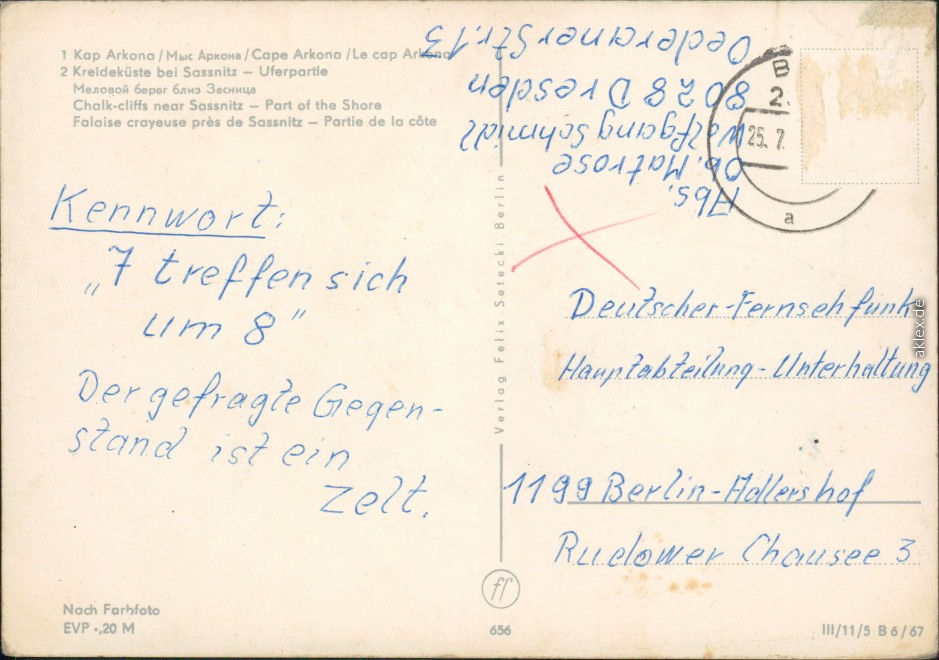 1 Kap Arkona / Мыс Аркона / Cape Arkona / Le cap Arkona
2 Kreideküste bei Sassnitz – Uferpartie
Меловой берег близ Засница
Chalk-cliffs near Sassnitz – Part of the Shore
Falaise crayeuse près de Sassnitz – Partie de la côte
Abs.
Ob. Matrose
Wolfgang Schmidt
8028 Dresden
Oederaner Str. 13
B
2.
25. 7.
a
Kennwort:
„7 treffen sich
um 8"
Der gefragte Gegen-
stand ist ein
Zelt.
Verlag Felix Setecki, Berlin
Deutscher-Fernsehfunk
Hauptabteilung-Unterhaltung
1199 Berlin-Adlershof
Rudower Chausee 3
ff
Nach Farbfoto
EVP -,20 M
656
III/11/5 B 6/67
aklex.de